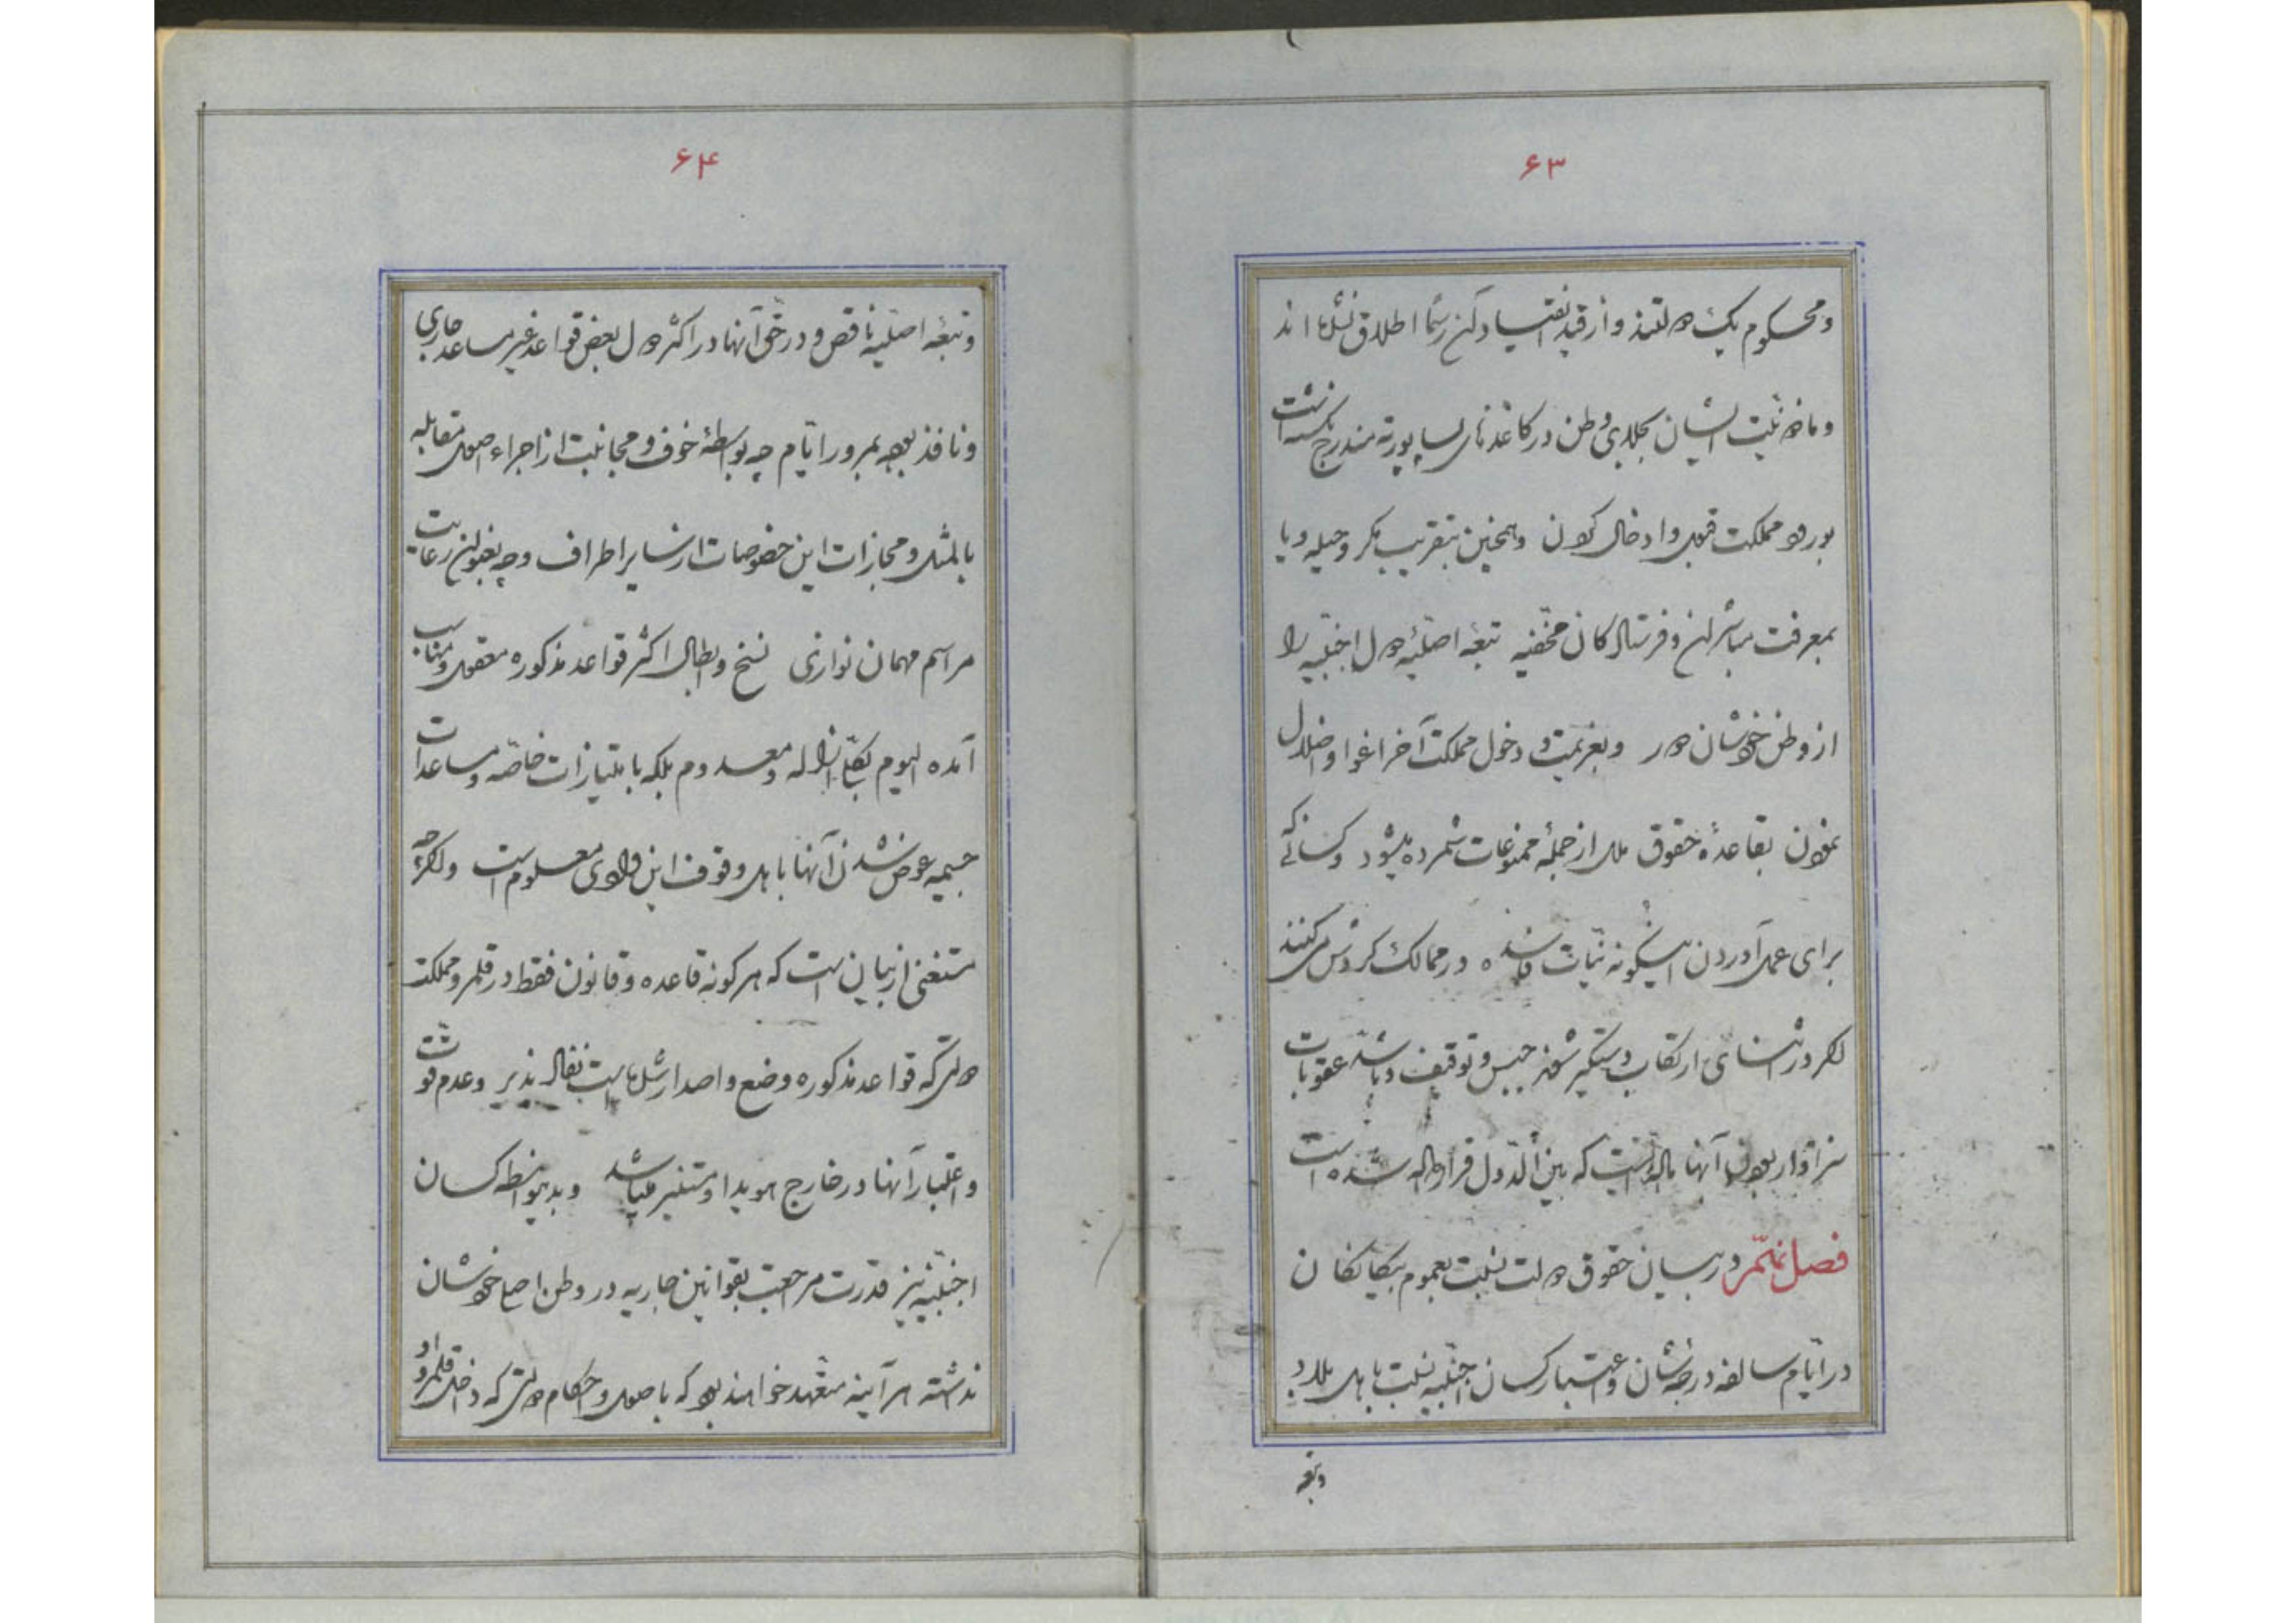 ۶۳
و محکوم یک دولتند و از قید انقیاد آن رسما اطلاق نشده‌اند
و ماذونیت ایشان بجلای وطن در کاغذهای پاسپورته مندرج نگشته است
بورود مملکت قبول و ادخال کردن و همچنین بتقریب مکر و حیله و یا
بمعرفت مباشرین و فرستادکان مخفیه تبعهٔ اصلیهٔ دول اجنبیه را
از وطن خودشان دور و بعزیمت و دخول مملکت آخر اغوا و اضلال
نمودن بقاعدهٔ حقوق ملل از جملهٔ ممنوعات شمرده میشود و کسانی که
برای عمل آوردن اینگونه نیات فاسده در ممالک گردش می‌کنند
اگر در اثنای ارتکاب دستگیر شوند حبس و توقیف و باشد عقوبات
سزاوار بودن آنها که بین الدول قرار داده شده است
فصل نهم در بیان حقوق دولت نسبت بعموم بیکانکان
در ایام سالفه درجهٔ شان و اعتبار کسان اجنبیه نسبت باهل بلاد
و تبعه
۶۴
و تبعهٔ اصلیه ناقص و در حق آنها در اکثر دول بعض قواعد غیر مساعد جاری
و نافذ بوده بمرور ایام چه بواسطهٔ خوف و مجانبت از اجراء اصول مقابله
بالمثل و مجازات این خصوصات از سایر اطراف و چه بعنوان رعایت
مراسم مهمان نوازی نسخ و ابطال اکثر قواعد مذکوره معقول و مناسب
آمده الیوم بکلی ازاله و معدوم بلکه بامتیازات خاصه و مساعدات
جسیمه عوض شدن آنها باهل وقوف این وادی معلوم است و اگرچه
مستغنی از بیان است که هر کونه قاعده و قانون فقط در قلمرو مملکت
دولتی که قواعد مذکوره وضع و اصدار شده است نفاذ پذیر و عدم قوت
و اعتبار آنها در خارج هویدا و مستنیر میباشد و بدینواسطه کسان
اجنبیه نیز قدرت مراجعت بقوانین جاریه در وطن اصلی خودشان
نداشته هر آینه متعهد خواهند بود که باصول و احکام دولتی که داخل قلمرو او